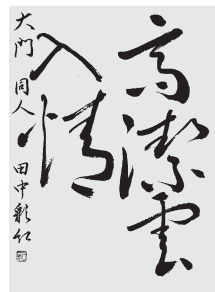 高潔雲
入情
大門 同人 田中彩红